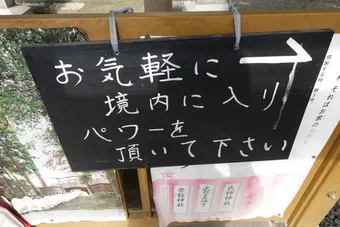 お気軽に
境内に入り
パワーを
頂いて下さい
氏神神社